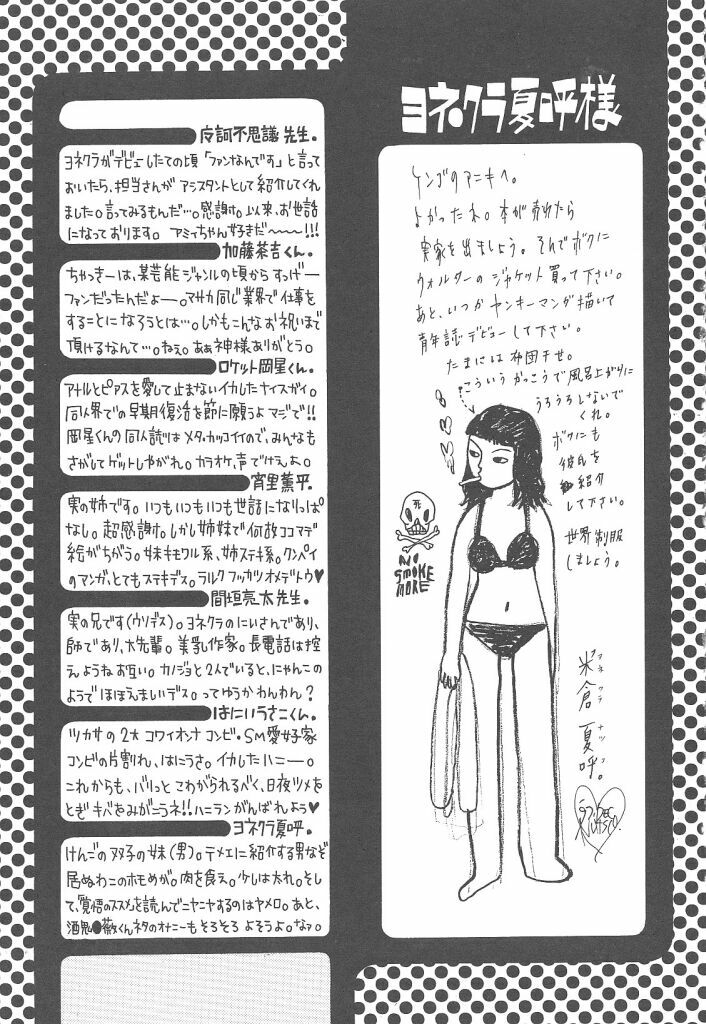 ヨネクラ夏呼様
ケンゴのアニキへ。
よかったネ。本が売れたら
実家を出ましょう。そんでボクに
ウォルターのジャケット買って下さい。
あと、いつかヤンキーマンガ描いて
青年誌デビューして下さい。
たまには布団干せ。
こういうかっこうで風呂上がりに
うろうろしないで
くれ。
ボクにも
彼氏を
紹介
して下さい。
世界制服
しましょう。
死
NO
SMOKE
MORE
米倉夏呼。
ヨネクラナツコ
皮訶不思議先生。
ヨネクラがデビューしたての頃「ファンなんです」と言って
おいたら、担当さんがアシスタントとして紹介してくれ
ました。言ってみるもんだ…。感謝。以来、お世話
になっております。アミィちゃん好きだ〜〜〜!!!
加藤茶吉くん。
ちゃっきーは、某芸能ジャンルの頃からすっげー
ファンだったんだよー。マサカ同じ業界で仕事を
することになろうとは…。しかもこんなお祝いまで
頂けるなんて…。ねぇ。あぁ神様ありがとう。
ロケット岡星くん。
アナルとピアスを愛して止まないイカしたナイスガイ。
同人界での早期復活を節に願うよマジで!!
岡星くんの同人誌はメタ・カッコイイので、みんなも
さがしてゲットしやがれ。カラオケ、声でけぇよ。
宵里薫平。
実の姉です。いつもいつもいつも世話になりっぱ
なし。超感謝。しかし姉妹で何故ココマデ
絵がちがう。妹キモワル系、姉ステキ系。クンペイ
のマンガ、とてもステキデス。ラルクフッカツオメデトウ♥
間垣亮太先生。
実の兄です(ウソデス)。ヨネクラのにいさんであり、
師であり、大先輩。美乳作家。長電話は控
えようねお互い。カノジョと2人でいると、にゃんこの
ようでほほえましいデス。ってゆうかわんわん?
はにいうさこくん。
ツカサの2大コワイオンナコンビ・SM愛好家
コンビの片割れ、はにうさ。イカしたハニー。
これからも、バリっとこわがられるべく、日夜ツメを
とぎキバをみがこうネ!!ハニランがんばれよう♥
ヨネクラ夏呼。
けんごの双子の妹(男)。テメエに紹介する男なぞ
居ぬわこのホモめが。肉を食え。少しは太れ。そし
て、覚悟のススメを読んでニヤニヤするのはヤメロ。あと、
酒鬼●薇くんネタのオナニーもそろそろよそうよ。なァ。